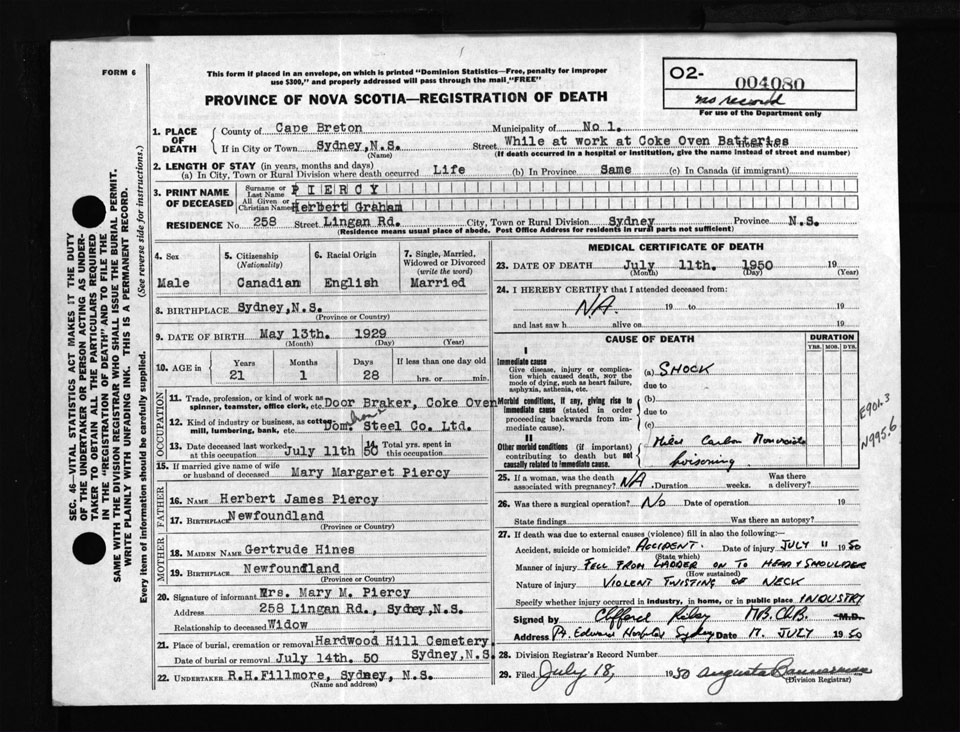 FORM 6
This form if placed in an envelope, on which is printed "Dominion Statistics—Free, penalty for improper
use $300," and properly addressed will pass through the mail "FREE"
PROVINCE OF NOVA SCOTIA—REGISTRATION OF DEATH
O2-
004080
no record
For use of the Department only
SEC. 46—VITAL STATISTICS ACT MAKES IT THE DUTY
OF THE UNDERTAKER OR PERSON ACTING AS UNDER-
TAKER TO OBTAIN ALL THE PARTICULARS REQUIRED
IN THE "REGISTRATION OF DEATH" AND TO FILE THE
SAME WITH THE DIVISION REGISTRAR WHO SHALL ISSUE THE BURIAL PERMIT.
WRITE PLAINLY WITH UNFADING INK. THIS IS A PERMANENT RECORD.
Every item of information should be carefully supplied.
(See reverse side for instructions.)
1. PLACE OF DEATH
County of Cape Breton Municipality of No 1.
If in City or Town Sydney,N.S. Street While at work at Coke Oven Batteries
(Name) (If death occurred in a hospital or institution, give the name instead of street and number)
2. LENGTH OF STAY (in years, months and days)
(a) In City, Town or Rural Division where death occurred Life (b) In Province Same (c) In Canada (if immigrant)
3. PRINT NAME OF DECEASED
Surname or Last Name PIERCY
All Given or Christian Names Herbert Graham
RESIDENCE No. 258 Street Lingan Rd. City, Town or Rural Division Sydney Province N.S.
(Residence means usual place of abode. Post Office Address for residents in rural parts not sufficient)
4. Sex
Male
5. Citizenship (Nationality)
Canadian
6. Racial Origin
English
7. Single, Married, Widowed or Divorced (write the word)
Married
8. BIRTHPLACE Sydney,N.S.
(Province or Country)
9. DATE OF BIRTH May 13th. 1929
(Month) (Day) (Year)
10. AGE in
Years Months Days If less than one day old
21 1 28 hrs. or min.
OCCUPATION
11. Trade, profession, or kind of work as
spinner, teamster, office clerk, etc. Door Braker, Coke Oven
12. Kind of industry or business, as cotton
mill, lumbering, bank, etc. Dom. Steel Co. Ltd.
13. Date deceased last worked
at this occupation July 11th 50
14. Total yrs. spent in
this occupation
15. If married give name of wife
or husband of deceased Mary Margaret Piercy
FATHER
16. NAME Herbert James Piercy
17. BIRTHPLACE Newfoundland
(Province or Country)
MOTHER
18. MAIDEN NAME Gertrude Hines
19. BIRTHPLACE Newfoundland
(Province or Country)
20. Signature of informant Mrs. Mary M. Piercy
Address 258 Lingan Rd., Sydney,N.S.
Relationship to deceased Widow
21. Place of burial, cremation or removal Hardwood Hill Cemetery,
Sydney,N.S.
Date of burial or removal July 14th. 50
22. UNDERTAKER R.H.Fillmore, Sydney, N.S.
(Name and address)
MEDICAL CERTIFICATE OF DEATH
23. DATE OF DEATH July 11th. 1950 19
(Month) (Day) (Year)
24. I HEREBY CERTIFY that I attended deceased from:
N.A. 19 to 19
and last saw h alive on 19
CAUSE OF DEATH
DURATION
YRS. MOS. DYS.
I
Immediate cause
Give disease, injury or complica-
tion which caused death, NOT the
mode of dying, such as heart failure,
asphyxia, asthenia, etc.
(a) SHOCK
due to
Morbid conditions, if any, giving rise to
immediate cause (stated in order
proceeding backwards from im-
mediate cause).
(b)
due to
(c)
II
Other morbid conditions (if important)
contributing to death but not
causally related to immediate cause.
Mild Carbon Monoxide
Poisoning.
E901.3
N995.6
25. If a woman, was the death
associated with pregnancy? NA Duration weeks. Was there
a delivery?
26. Was there a surgical operation? NO Date of operation 19
State findings Was there an autopsy?
27. If death was due to external causes (violence) fill in also the following:—
Accident, suicide or homicide? ACCIDENT. Date of injury JULY 11 1950
(State which)
Manner of injury FELL FROM LADDER ON TO HEAD & SHOULDER
(How sustained)
Nature of injury VIOLENT TWISTING OF NECK
Specify whether injury occurred in industry, in home, or in public place INDUSTRY
Signed by Clifford M.B. Ch.B. M.D.
Address Pt. Edward Hospital Sydney Date 17. JULY 1950
28. Division Registrar's Record Number
29. Filed July 18, 1950 Augusta
(Division Registrar)